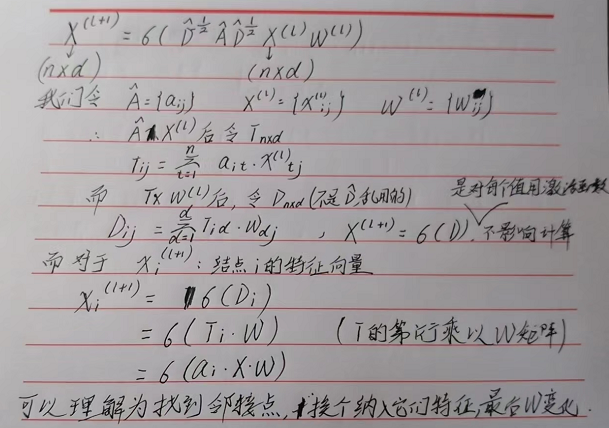 X^(l+1) = 6( D̂^½ Â D̂^½ X^(l) W^(l) )
(n×d) (n×d)
我们令 Â = {aij} X^(l) = {x^(l)ij} W^(l) = {Wij}
∴ Â X^(l) 后令 Tn×d
Tij = Σ(t=1→n) ait · X^(l)tj
而 T×W^(l) 后, 令 Dn×d (不是D̂, 乱用的) 是对每个值用激活函数
Dij = Σ(d=1→d) Tid · Wdj , X^(l+1) = 6(D). 不影响计算
而对于 Xi^(l+1) : 结点i的特征向量
Xi^(l+1) = 6(Di)
= 6(Ti·W) (T的第i行乘以W矩阵)
= 6(ai·X·W)
可以理解为找到邻接点, 挨个纳入它们特征, 最后W变化.